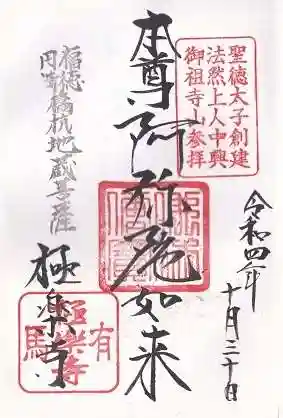 聖徳太子創建
法然上人中興
御祖寺山参拝
令和四年
十月三十日
本尊阿弥陀如来
福徳橋杭地蔵菩薩
極楽寺
有馬
極楽寺